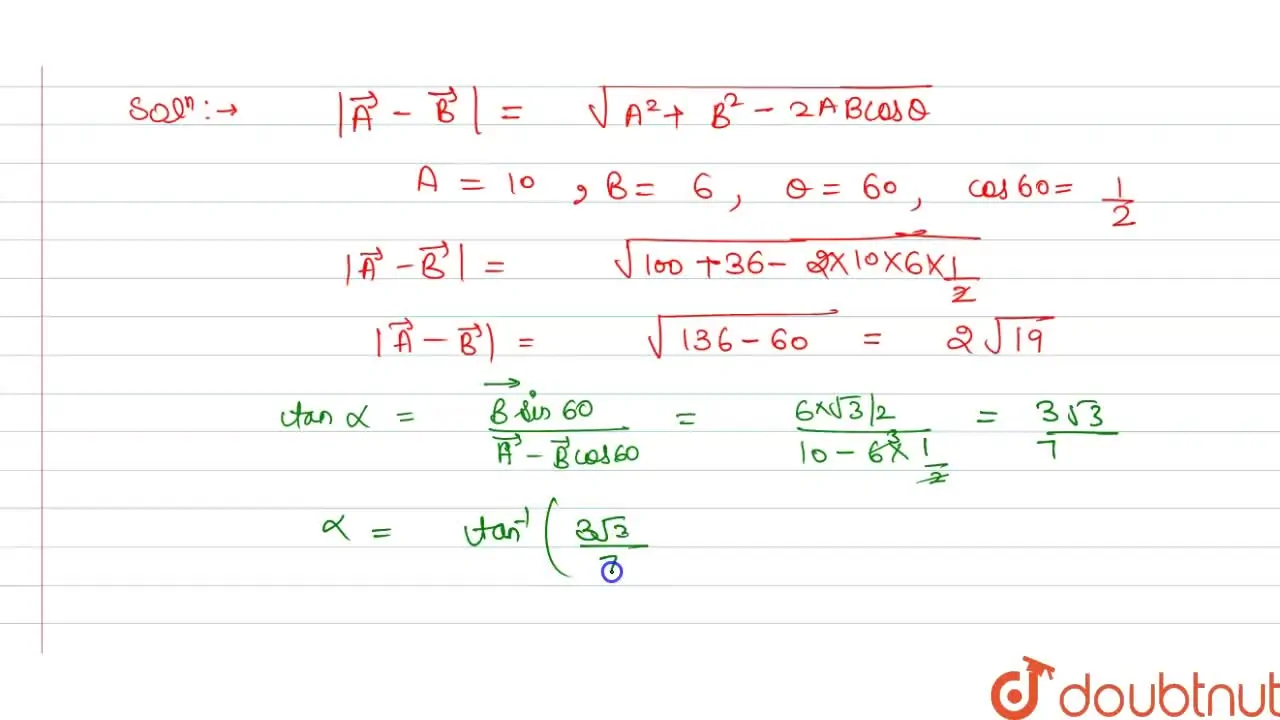 Solⁿ :→ |A⃗ − B⃗| = √(A² + B² − 2ABcosθ)
A = 10 , B = 6 , θ = 60 , cos 60 = 1/2
|A⃗ − B⃗| = √(100 + 36 − 2×10×6×1/2)
|A⃗ − B⃗| = √(136 − 60) = 2√19
tan α = B⃗ sin 60 / (A⃗ − B⃗ cos 60) = (6×√3/2) / (10 − 6³ × 1/2) = 3√3/7
α = tan⁻¹ ( 3√3/7
doubtnut